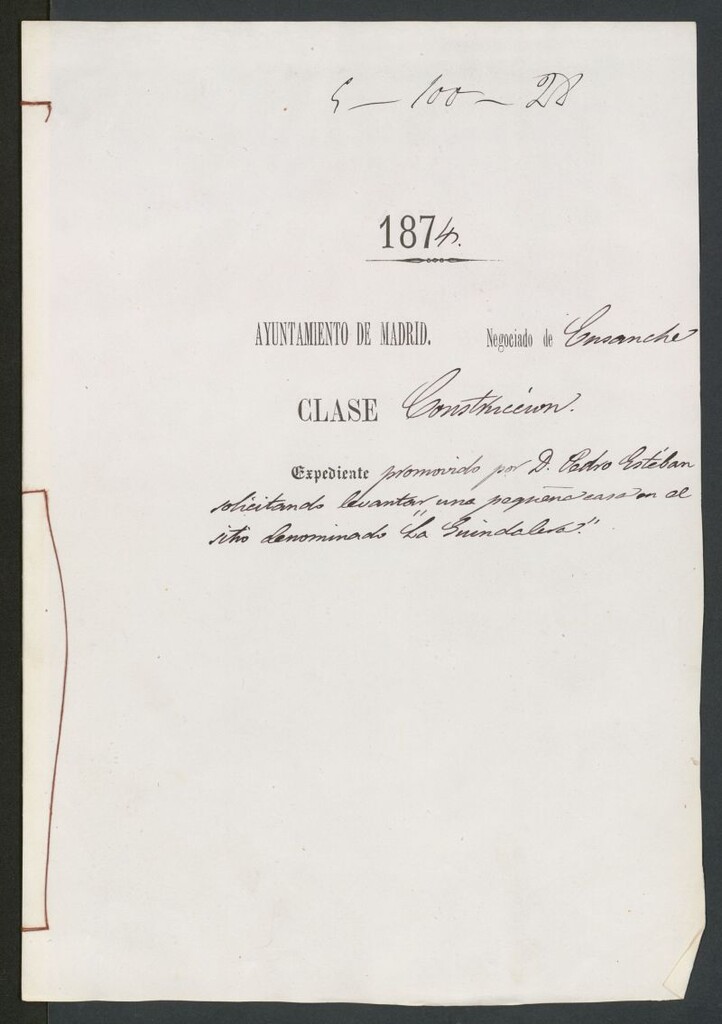 5 — 100 — 28
1874.
AYUNTAMIENTO DE MADRID. Negociado de Ensanche
CLASE Construccion.
Expediente promovido por D. Pedro Estéban
solicitando levantar una pequeña casa en el
sitio denominado "La Guindalera".